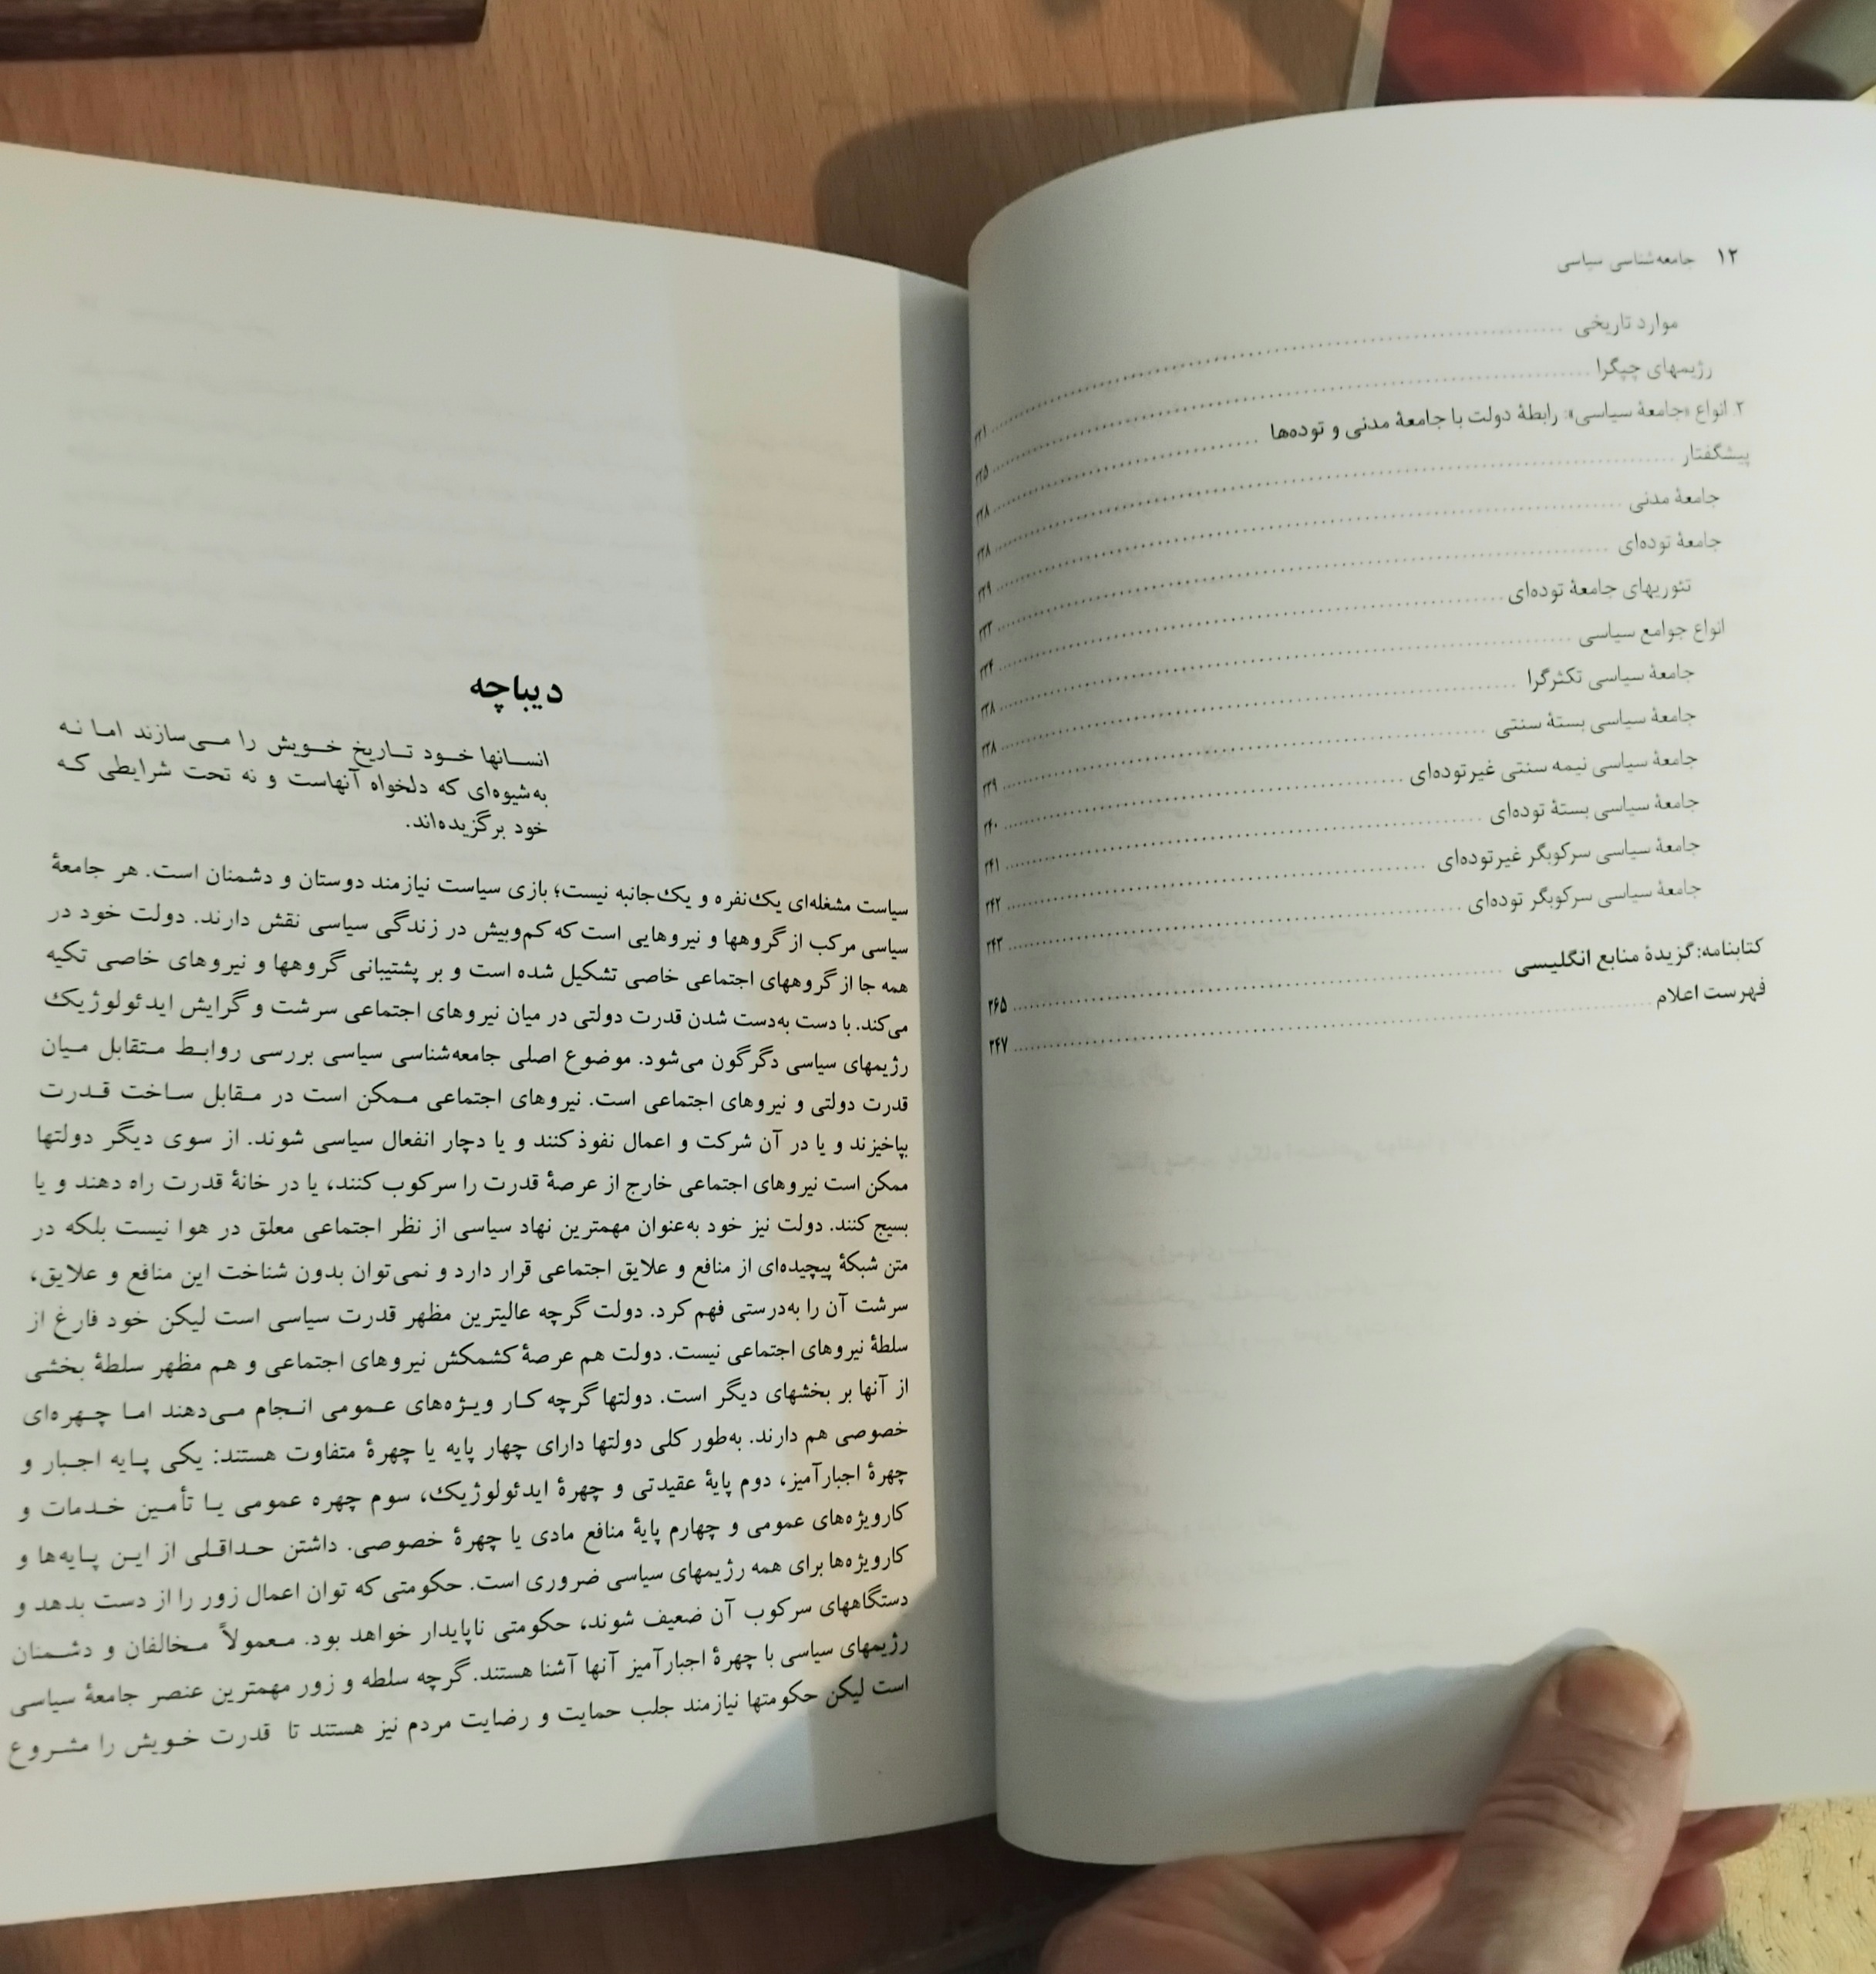 ۱۲ جامعه‌شناسی سیاسی
موارد تاریخی ........ ۳۲۱
رژیمهای چپگرا ........ ۳۲۵
۲. انواع «جامعهٔ سیاسی»: رابطهٔ دولت با جامعهٔ مدنی و توده‌ها ........ ۳۲۸
پیشگفتار ........ ۳۲۸
جامعهٔ مدنی ........ ۳۲۹
جامعهٔ توده‌ای ........ ۳۳۳
تئوریهای جامعهٔ توده‌ای ........ ۳۳۴
انواع جوامع سیاسی ........ ۳۳۸
جامعهٔ سیاسی تکثرگرا ........ ۳۳۸
جامعهٔ سیاسی بستهٔ سنتی ........ ۳۳۹
جامعهٔ سیاسی نیمه سنتی غیرتوده‌ای ........ ۳۴۰
جامعهٔ سیاسی بستهٔ توده‌ای ........ ۳۴۱
جامعهٔ سیاسی سرکوبگر غیرتوده‌ای ........ ۳۴۲
جامعهٔ سیاسی سرکوبگر توده‌ای ........ ۳۴۳
کتابنامه: گزیدهٔ منابع انگلیسی ........ ۳۶۵
فهرست اعلام ........ ۳۴۷
دیباچه
انسانها خود تاریخ خویش را می‌سازند اما نه
به‌شیوه‌ای که دلخواه آنهاست و نه تحت شرایطی که
خود برگزیده‌اند.
سیاست مشغله‌ای یک‌نفره و یک‌جانبه نیست؛ بازی سیاست نیازمند دوستان و دشمنان است. هر جامعهٔ
سیاسی مرکب از گروهها و نیروهایی است که کم‌وبیش در زندگی سیاسی نقش دارند. دولت خود در
همه جا از گروههای اجتماعی خاصی تشکیل شده است و بر پشتیبانی گروهها و نیروهای خاصی تکیه
می‌کند. با دست به‌دست شدن قدرت دولتی در میان نیروهای اجتماعی سرشت و گرایش ایدئولوژیک
رژیمهای سیاسی دگرگون می‌شود. موضوع اصلی جامعه‌شناسی سیاسی بررسی روابط متقابل میان
قدرت دولتی و نیروهای اجتماعی است. نیروهای اجتماعی ممکن است در مقابل ساخت قدرت
بپاخیزند و یا در آن شرکت و اعمال نفوذ کنند و یا دچار انفعال سیاسی شوند. از سوی دیگر دولتها
ممکن است نیروهای اجتماعی خارج از عرصهٔ قدرت را سرکوب کنند، یا در خانهٔ قدرت راه دهند و یا
بسیج کنند. دولت نیز خود به‌عنوان مهمترین نهاد سیاسی از نظر اجتماعی معلق در هوا نیست بلکه در
متن شبکهٔ پیچیده‌ای از منافع و علایق اجتماعی قرار دارد و نمی‌توان بدون شناخت این منافع و علایق،
سرشت آن را به‌درستی فهم کرد. دولت گرچه عالیترین مظهر قدرت سیاسی است لیکن خود فارغ از
سلطهٔ نیروهای اجتماعی نیست. دولت هم عرصهٔ کشمکش نیروهای اجتماعی و هم مظهر سلطهٔ بخشی
از آنها بر بخشهای دیگر است. دولتها گرچه کار ویژه‌های عمومی انجام می‌دهند اما چهره‌ای
خصوصی هم دارند. به‌طور کلی دولتها دارای چهار پایه یا چهرهٔ متفاوت هستند: یکی پایه اجبار و
چهرهٔ اجبارآمیز، دوم پایهٔ عقیدتی و چهرهٔ ایدئولوژیک، سوم چهره عمومی یا تأمین خدمات و
کارویژه‌های عمومی و چهارم پایهٔ منافع مادی یا چهرهٔ خصوصی. داشتن حداقلی از این پایه‌ها و
کارویژه‌ها برای همه رژیمهای سیاسی ضروری است. حکومتی که توان اعمال زور را از دست بدهد و
دستگاههای سرکوب آن ضعیف شوند، حکومتی ناپایدار خواهد بود. معمولاً مخالفان و دشمنان
رژیمهای سیاسی با چهرهٔ اجبارآمیز آنها آشنا هستند. گرچه سلطه و زور مهمترین عنصر جامعهٔ سیاسی
است لیکن حکومتها نیازمند جلب حمایت و رضایت مردم نیز هستند تا قدرت خویش را مشروع